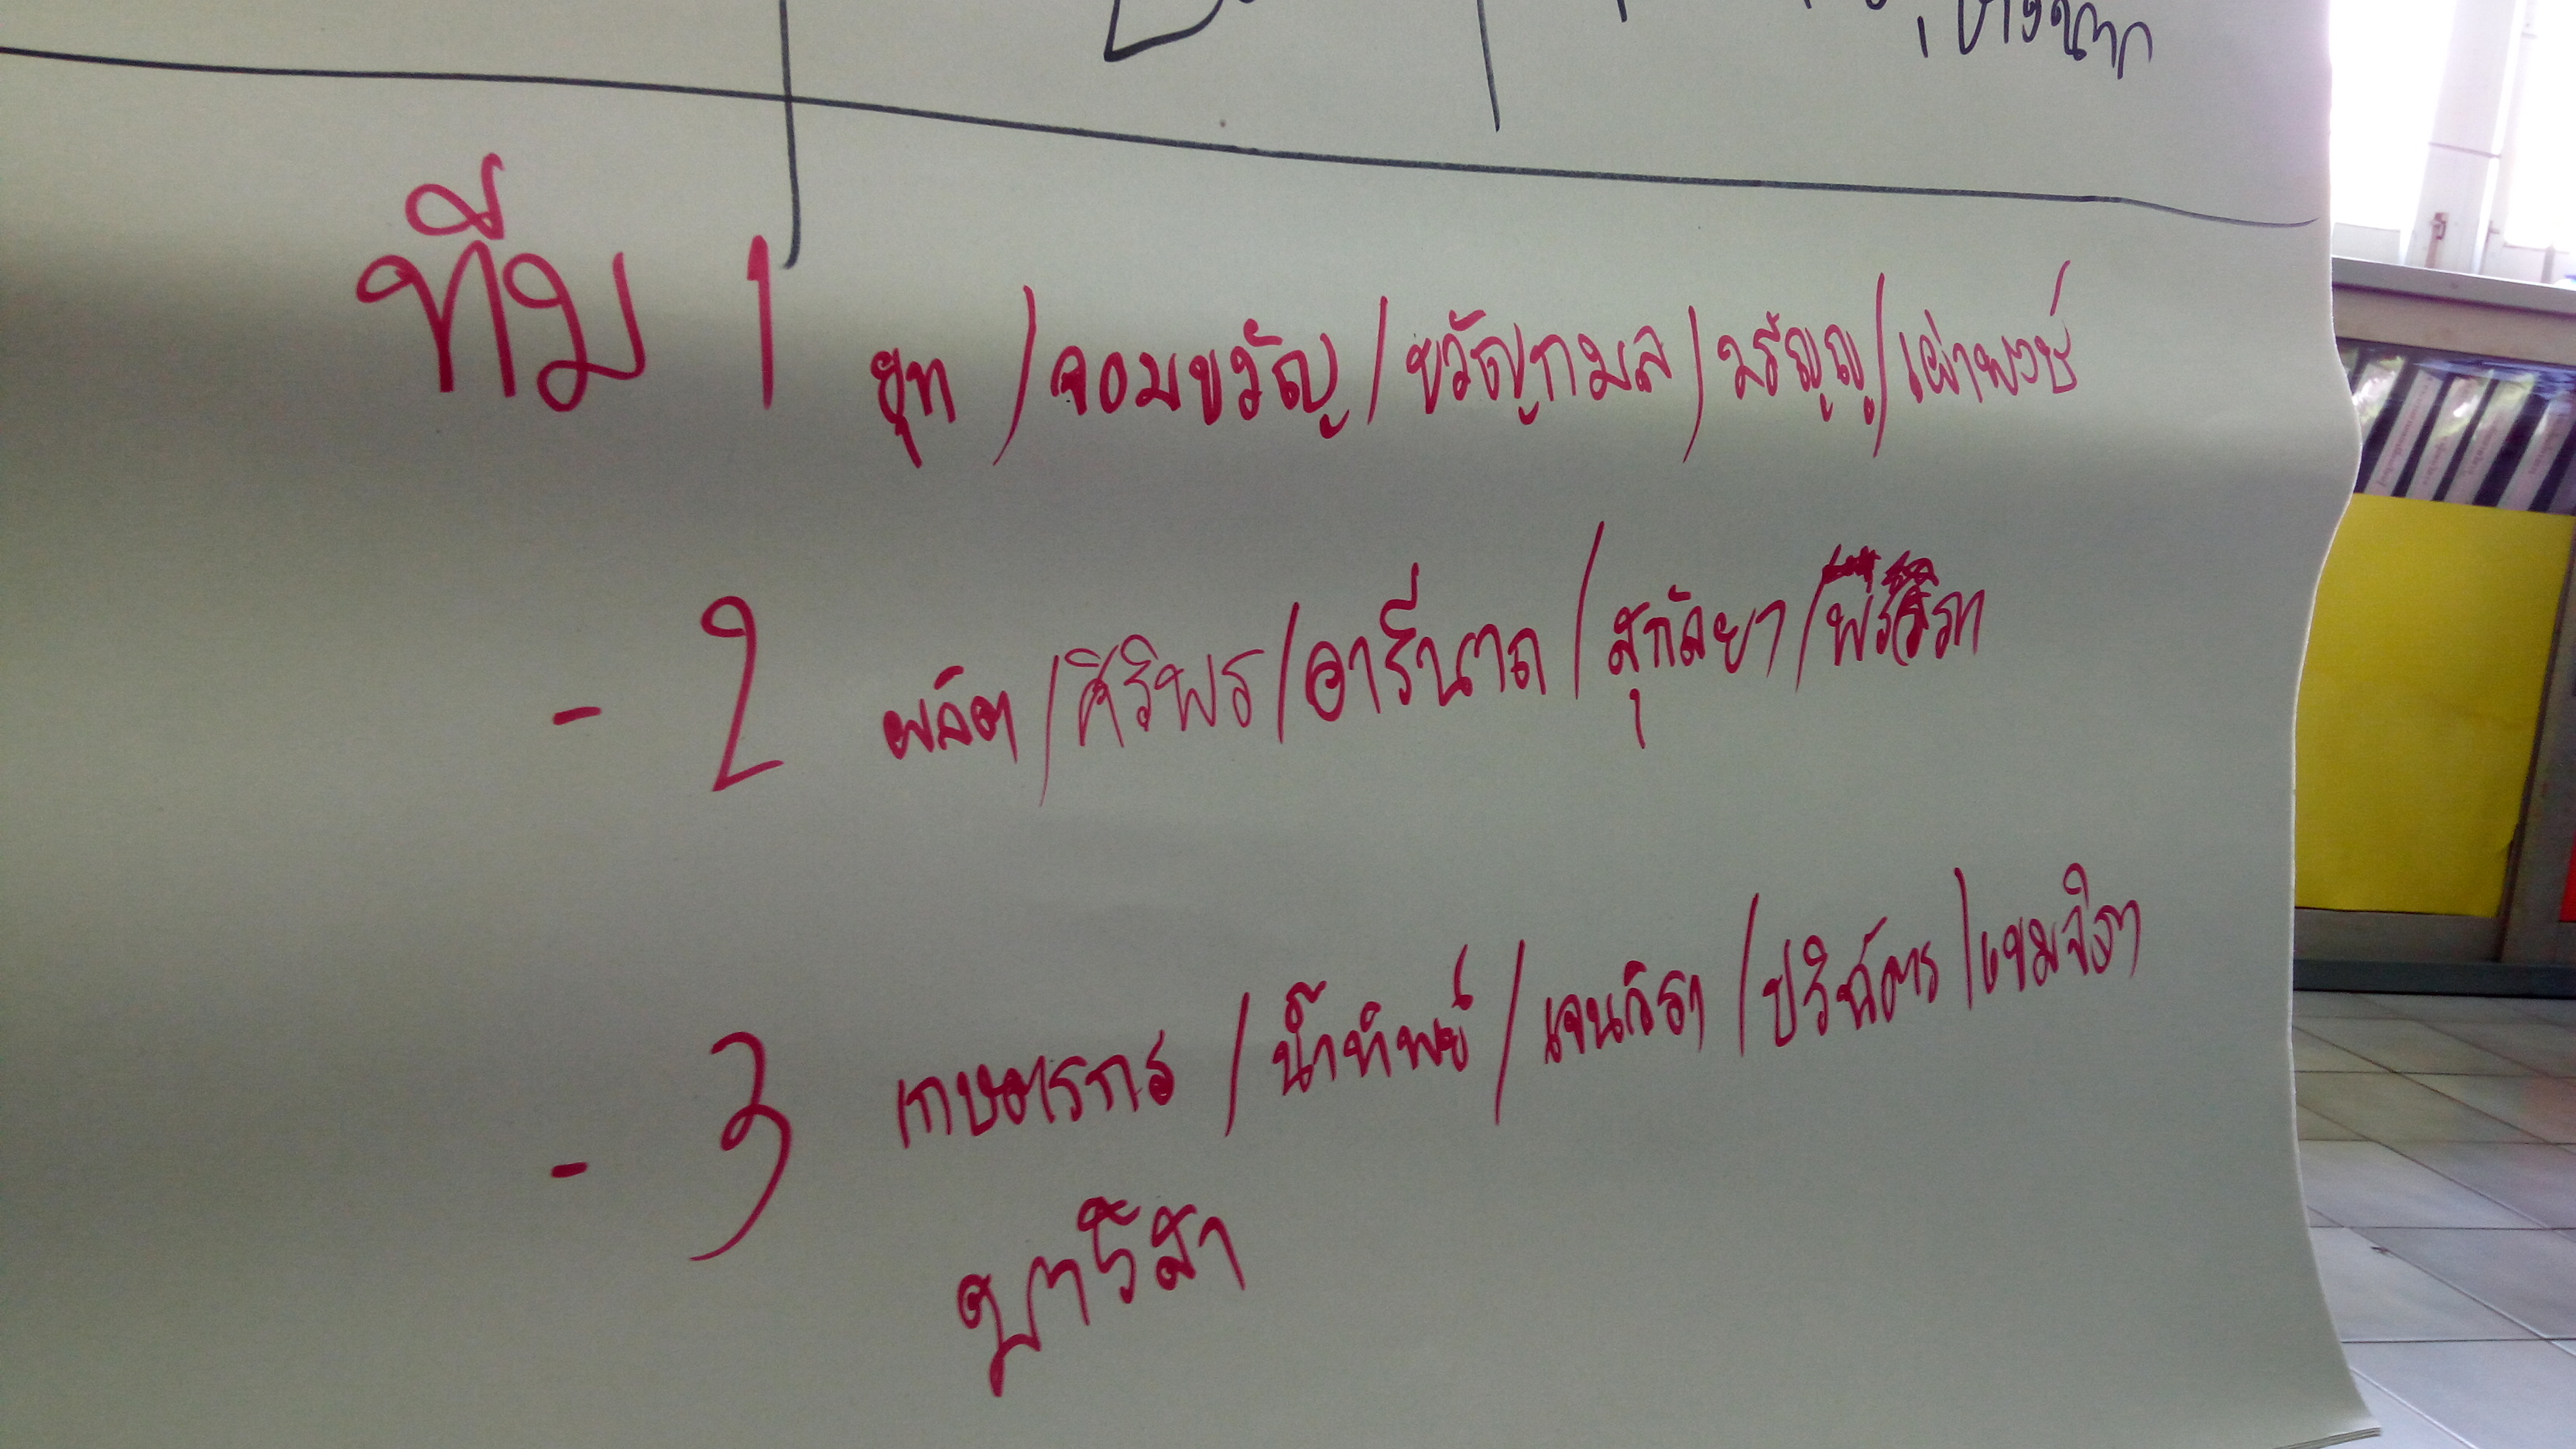 ทีม 1 ยุท / จอมขวัญ / ขวัญกมล / มรัญญู / เผ่าพงษ์
- 2 พลิต / ศิริพร / อารีนาถ / สุกัลยา /
- 3 เกษตรกร / น้ำทิพย์ / เจนจิรา / ปริฉัตร / เขมจิรา
นูารีสา